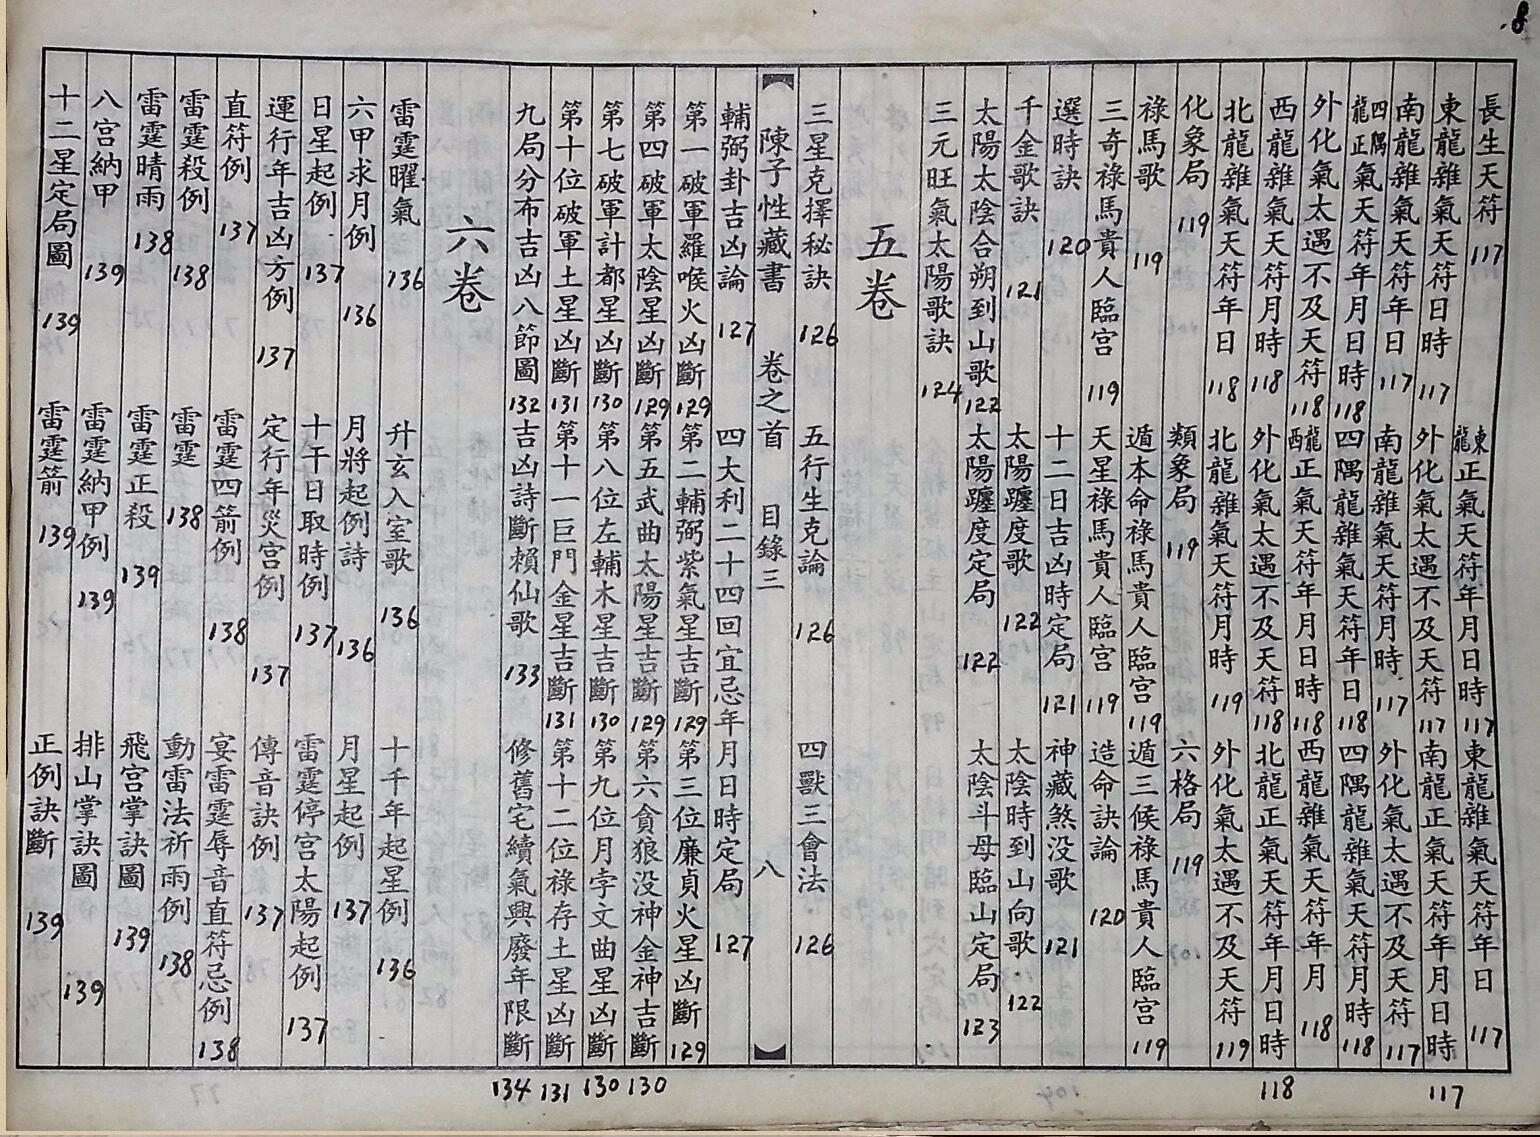 8
長生天符 117 東龍正氣天符年月日時 117 東龍雜氣天符年日 117
東龍雜氣天符日時 117 外化氣太過不及天符 117 南龍正氣天符年月日時 117
南龍雜氣天符年日 117 南龍雜氣天符月時 117 外化氣太遇不及天符 117
四隅龍正氣天符年月日時 118 四隅龍雜氣天符年日 118 四隅龍雜氣天符月時 118
外化氣太遇不及天符 118 西龍正氣天符年月日時 118 西龍雜氣天符年月 118
西龍雜氣天符月時 118 外化氣太遇不及天符 118 北龍正氣天符年月日時 118
北龍雜氣天符年日 118 北龍雜氣天符月時 119 外化氣太遇不及天符 119
化象局 119 類象局 119 六格局 119
祿馬歌 119 遁本命祿馬貴人臨宮 119 遁三候祿馬貴人臨宮 119
三奇祿馬貴人臨宮 119 天星祿馬貴人臨宮 119 造命訣論 120
選時訣 120 十二日吉凶時定局 121 神藏煞没歌 121
千金歌訣 121 太陽躔度歌 122 太陰時到山向歌 122
太陽太陰合朔到山歌 122 太陽躔度定局 122 太陰斗母臨山定局 123
三元旺氣太陽歌訣 124
五卷
三星克擇秘訣 126 五行生克論 126 四獸三會法 126
陳子性藏書 卷之首 目錄三 八
輔弼卦吉凶論 127 四大利二十四回宜忌年月日時定局 127
第一破軍羅喉火凶斷 129 第二輔弼紫氣星吉斷 129 第三位廉貞火星凶斷 129
第四破軍太陰星凶斷 129 第五武曲太陽星吉斷 129 第六貪狼没神金神吉斷 130
第七破軍計都星凶斷 130 第八位左輔木星吉斷 130 第九位月孛文曲星凶斷 130
第十位破軍土星凶斷 131 第十一巨門金星吉斷 131 第十二位祿存土星凶斷 131
九局分布吉凶八節圖 132 吉凶詩斷賴仙歌 133 修舊宅續氣興廢年限斷 134
六卷
雷霆曜氣 136 升玄入室歌 136 十千年起星例 136
六甲求月例 136 月將起例詩 136 月星起例 137
日星起例 137 十午日取時例 137 雷霆停宮太陽起例 137
運行年吉凶方例 137 定行年災宮例 137 傳音訣例 137
直符例 137 雷霆四箭例 138 宴雷霆辱音直符忌例 138
雷霆殺例 138 雷霆 138 動雷法祈雨例 138
雷霆晴雨 138 雷霆正殺 139 飛宮掌訣圖 139
八宮納甲 139 雷霆納甲例 139 排山掌訣圖 139
十二星定局圖 139 雷霆箭 139 正例訣斷 139